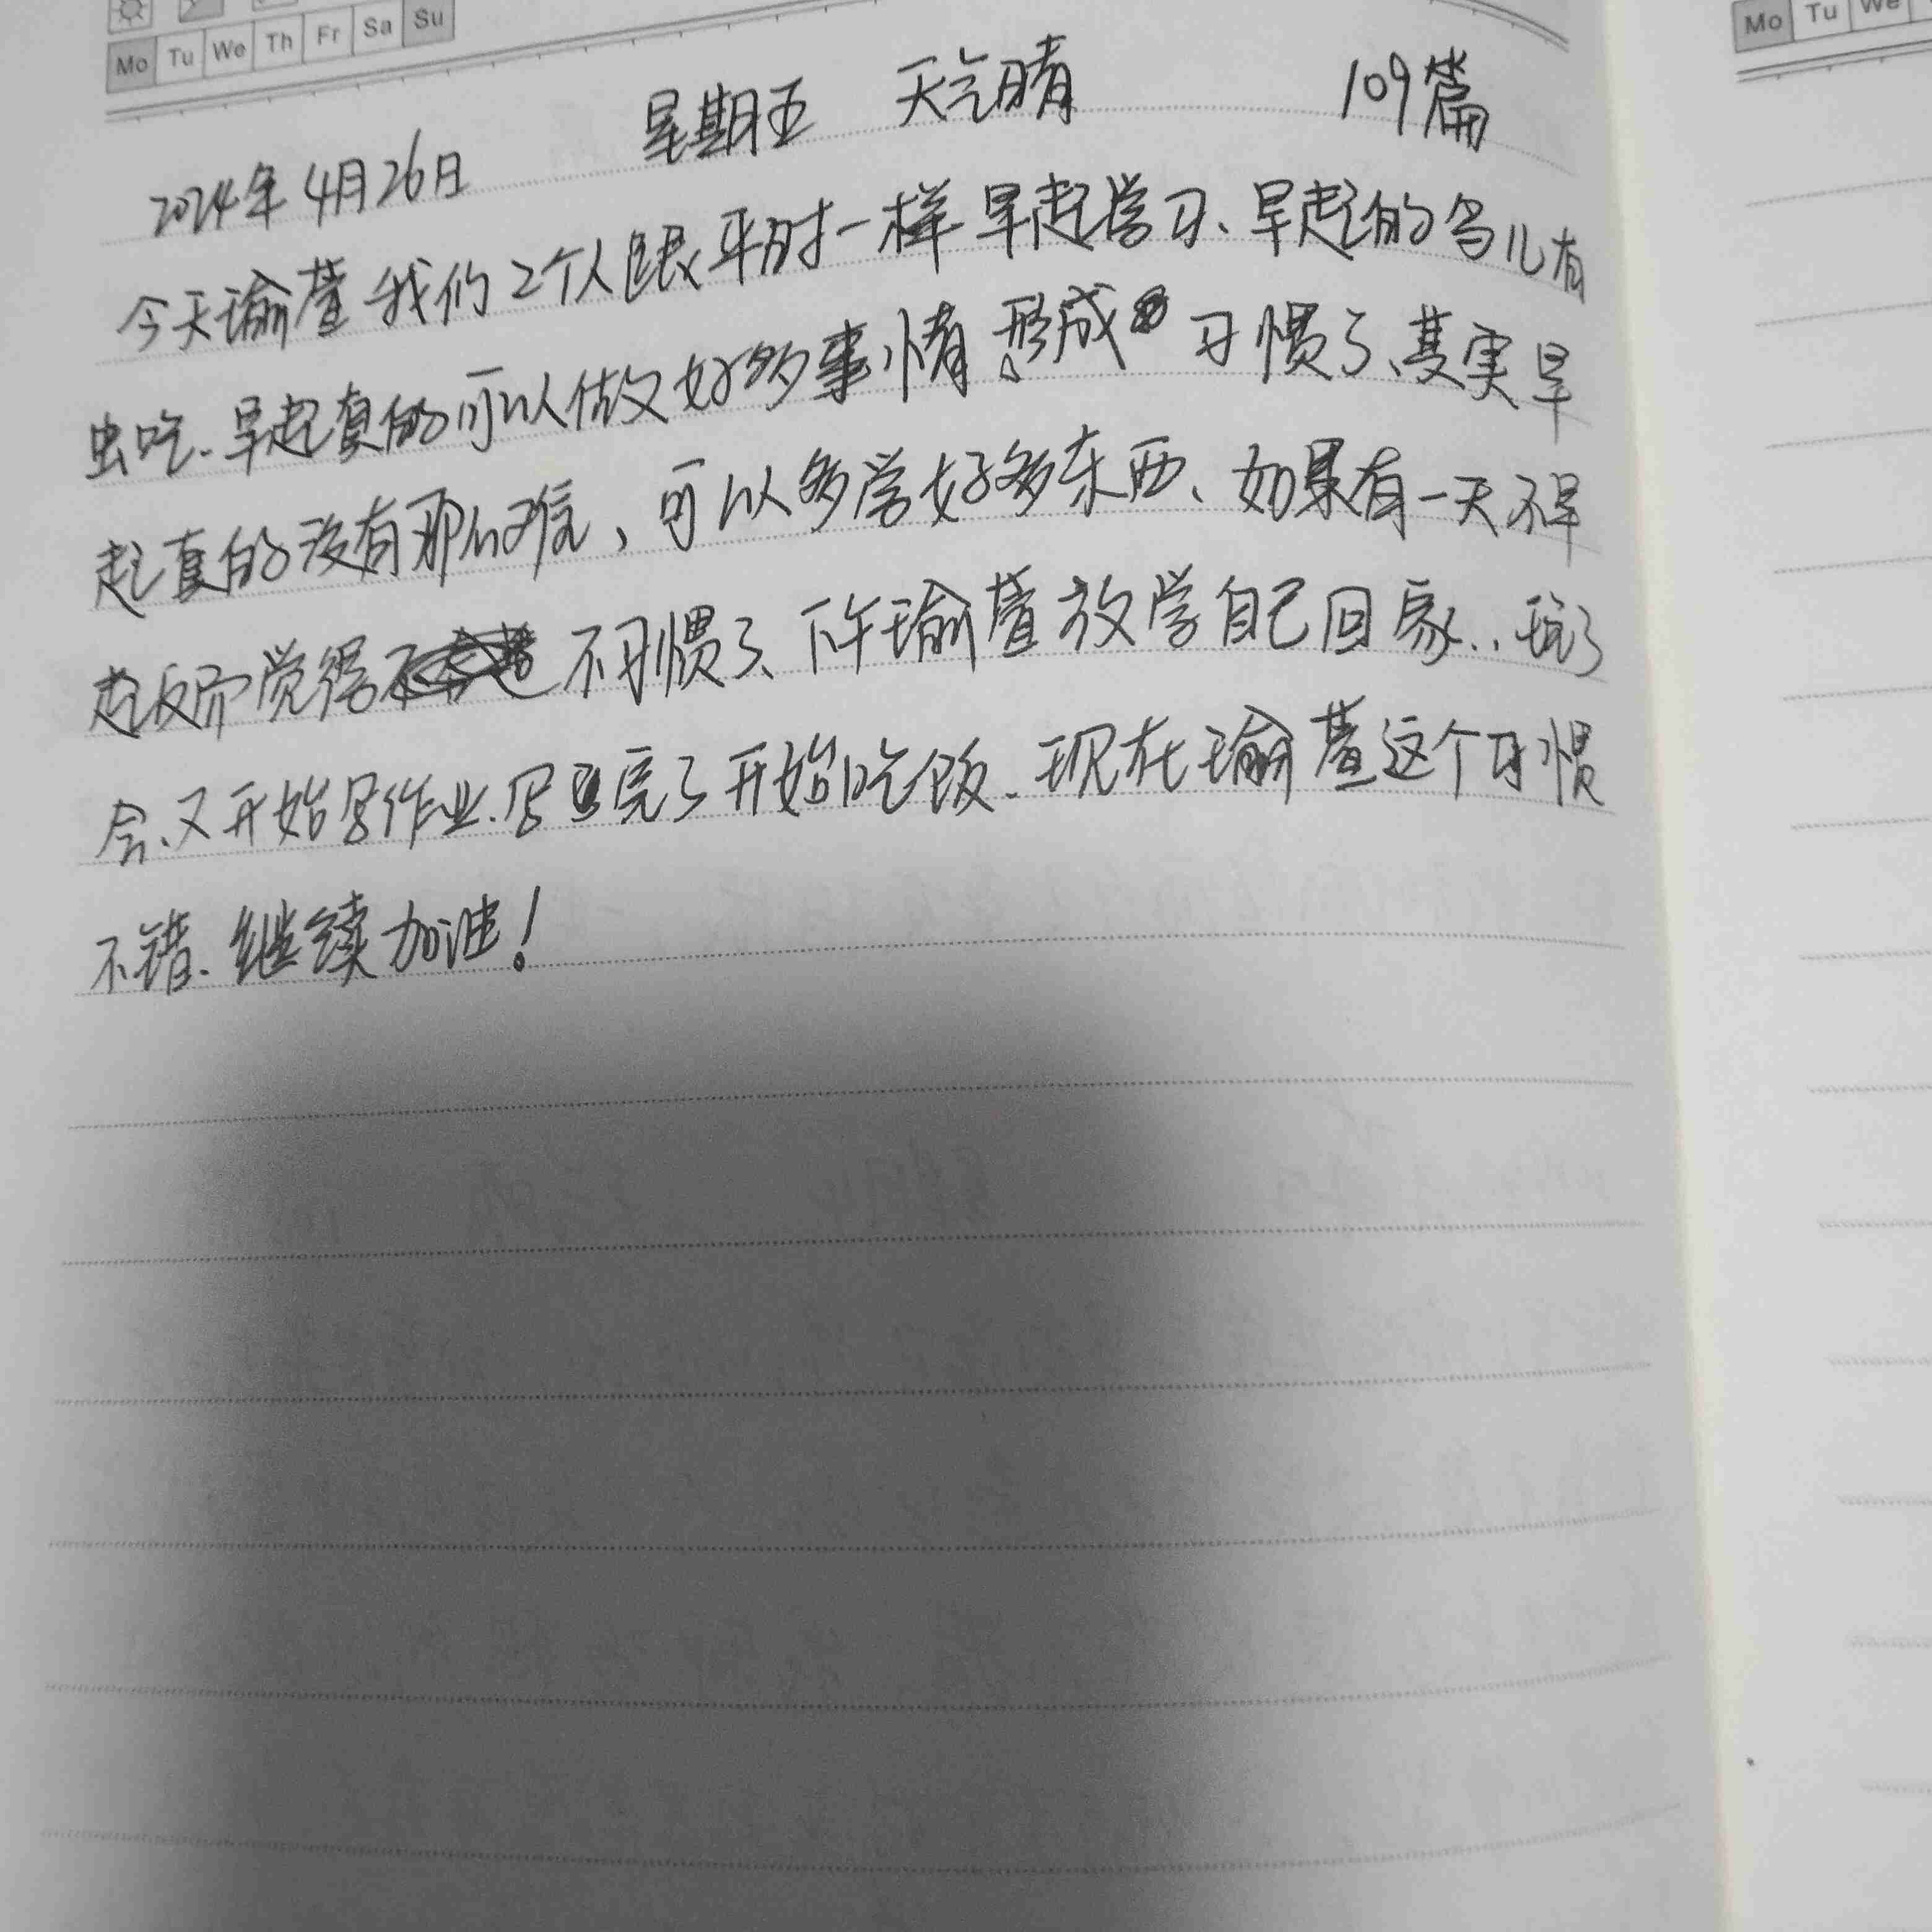 Mo Tu We Th Fr Sa Su
Mo Tu We
2024年4月26日 星期五 天气晴 109篇
今天瑜萱我们2个人跟平时一样早起学习、早起的鸟儿有
虫吃.早起真的可以做好多事情.形成习惯了、其实早
起真的没有那么难,可以多学好多东西、如果有一天不早
起反而觉得不习惯了、下午瑜萱放学自己回家..玩了
会、又开始写作业.写完了开始吃饭.现在瑜萱这个习惯
不错.继续加油!